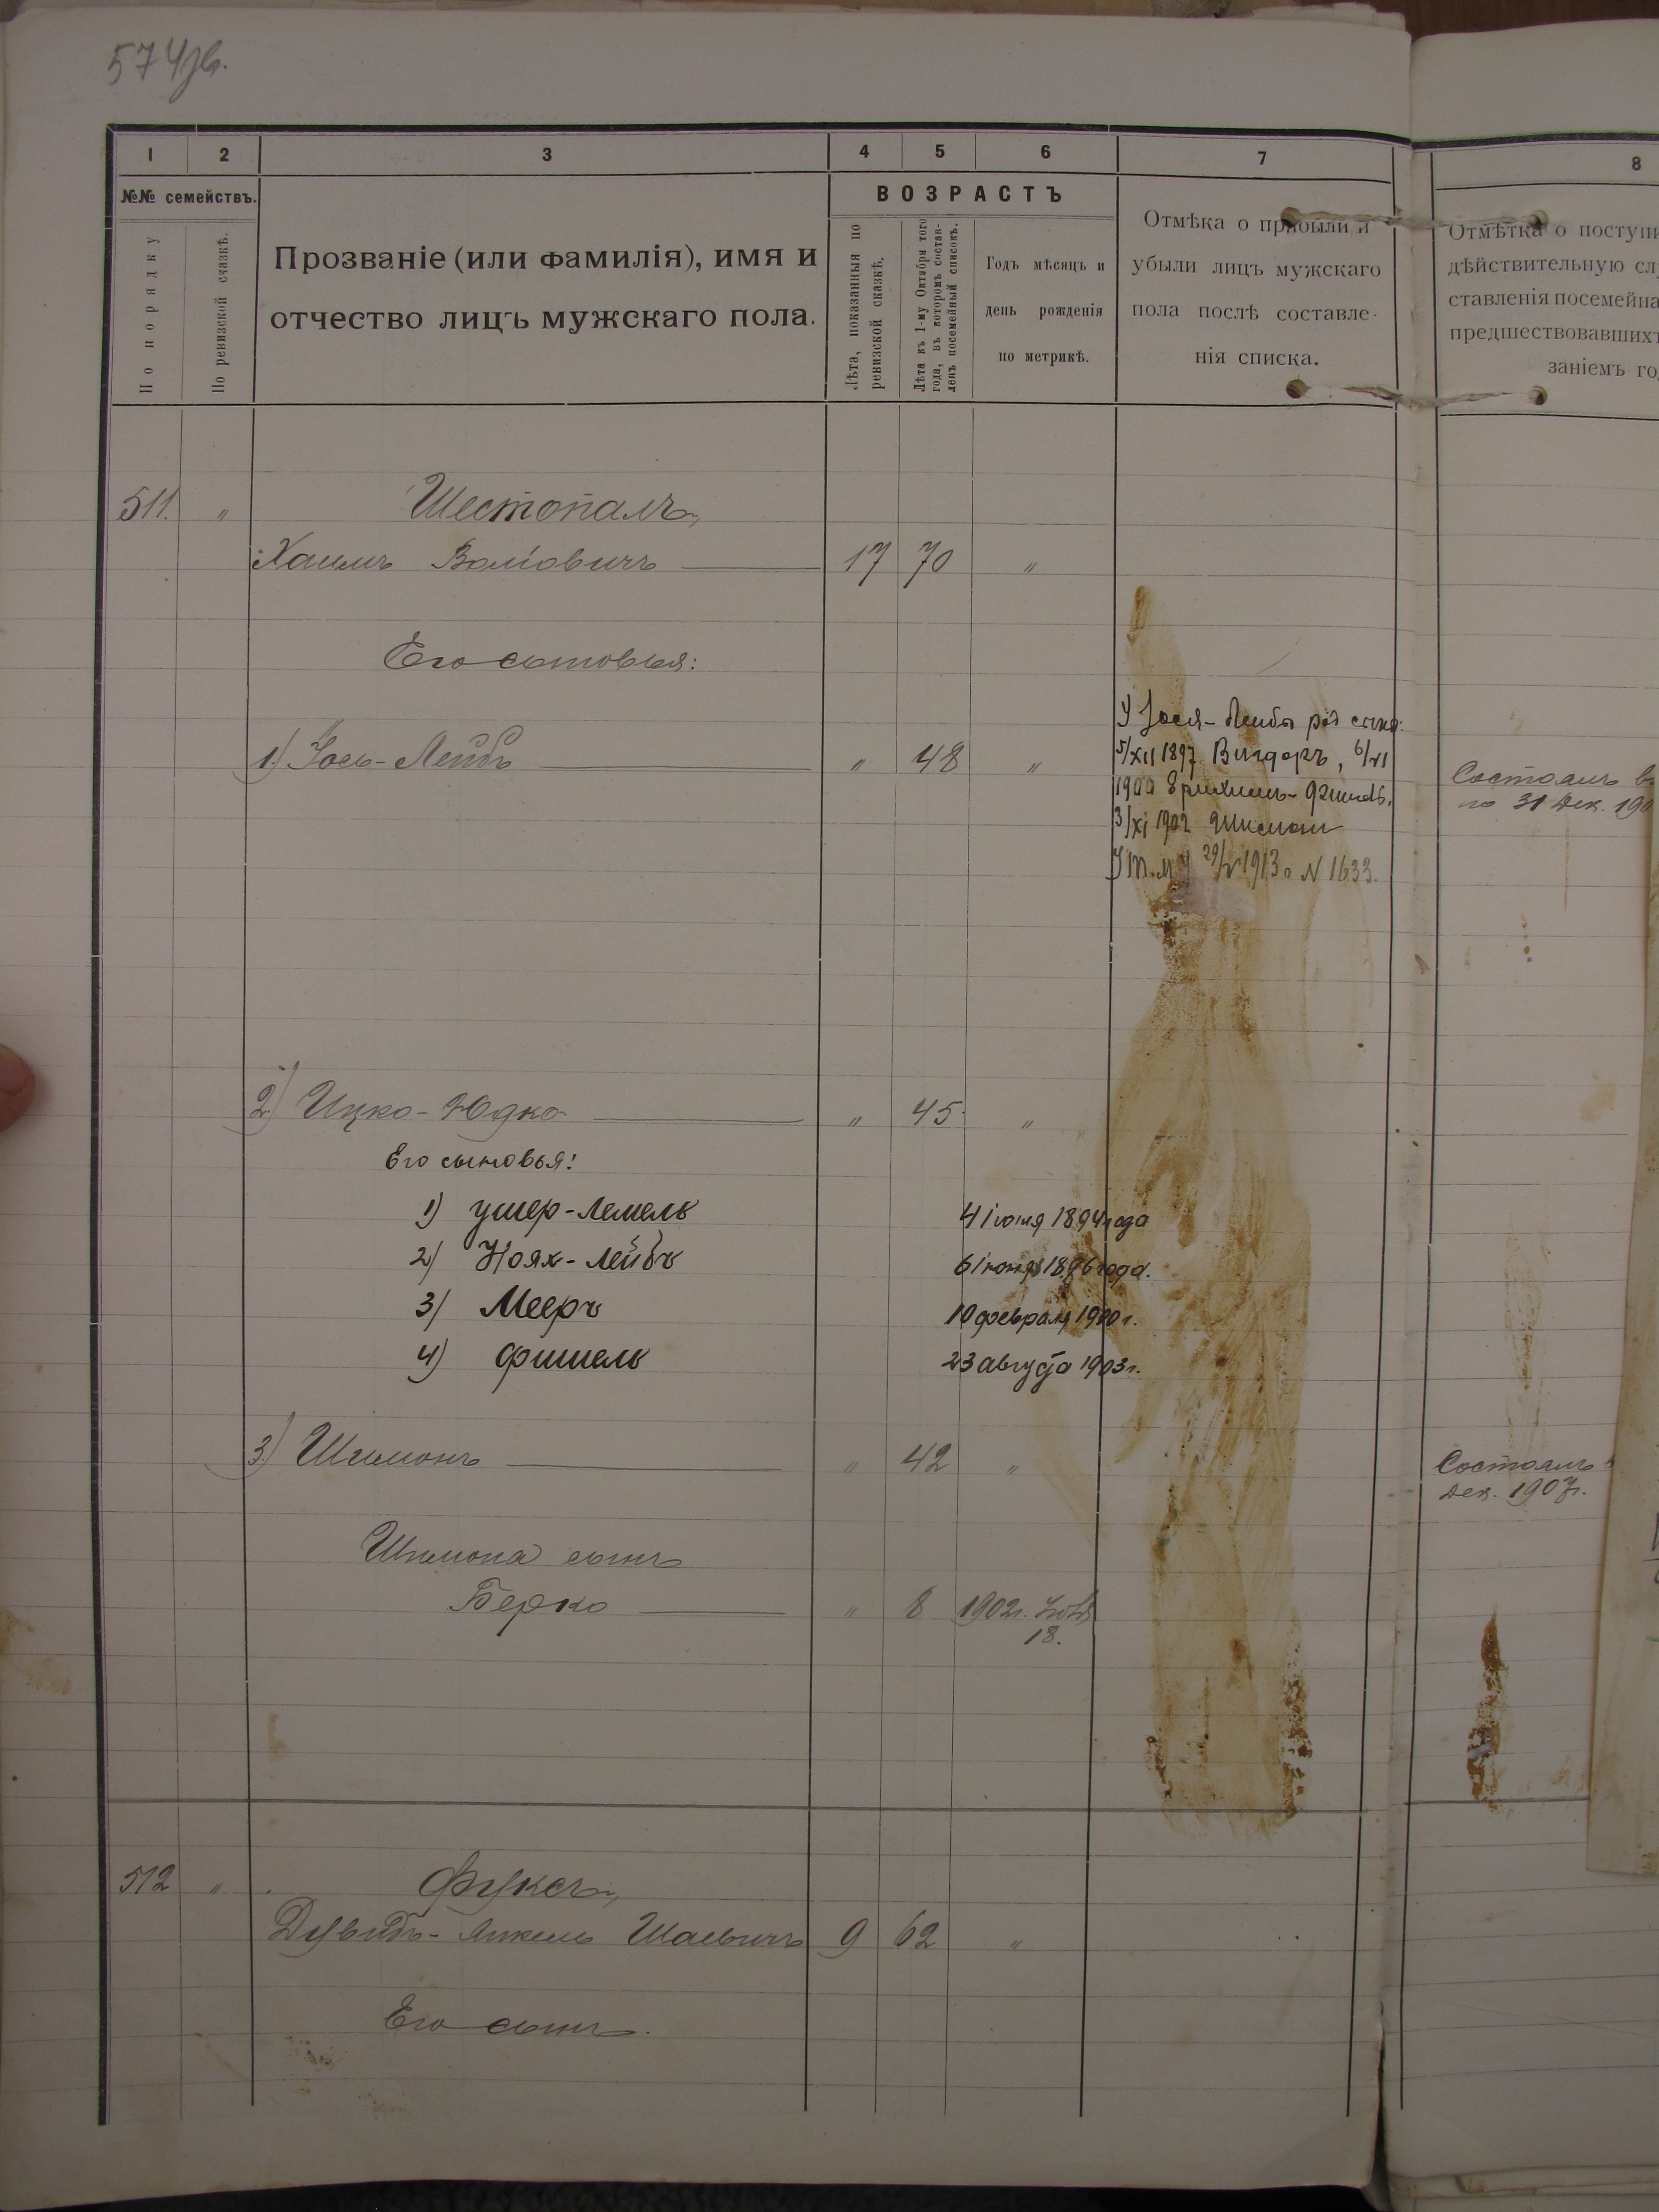 574об.
1 2 3 4 5 6 7 8
№№ семействъ.
По порядку
По ревизской сказкѣ.
Прозваніе (или фамилія), имя и
отчество лицъ мужскаго пола.
ВОЗРАСТЪ
Лѣта, показанныя по
ревизской сказкѣ.
Лѣта къ 1-му Октября того
года, въ которомъ состав-
ленъ посемейный списокъ.
Годъ мѣсяцъ и
день рожденія
по метрикѣ.
Отмѣка о прибыли и
убыли лицъ мужскаго
пола послѣ составле-
нія списка.
Отмѣтка о поступи
дѣйствительную сл
ставленія посемейна
предшествовавшихъ
заніемъ го
511. " Шестопалъ,
Хаимъ Волiовичъ 17 70 "
Его сыновья:
1) Іось-Лейбъ " 48 "
У Іося-Лейбы род сыны:
5/XII 1897 Вигдоръ, 6/VI
1900
3/XI 1902
29/V 1913 № 1633.
Состоялъ в
по 31 Дек. 190
2) Ицко-Юдко " 45 "
Его сыновья:
1) Ушер-Лемель 4 іюня 1894 года
2) Ноях-Лейбъ 6 1896 года.
3) Мееръ 10 февраля 1900 г.
4) Фишель 23 августа 1903 г.
3) Шимонъ " 42 "
Состоялъ
Дек. 1907г.
Шимона сынъ
Берко " 8 1902г.
18.
512 " Фуксъ,
Дувидъ- Шаевичъ 9 62 "
Его сынъ.